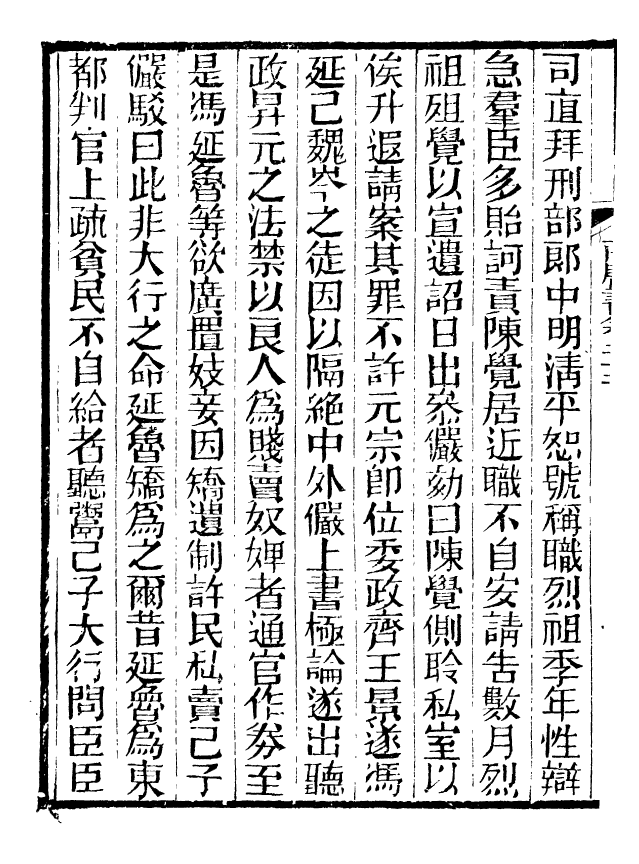 司直拜刑部郎中明清平恕號稱職烈祖季年性辯
急羣臣多貽訶責陳覺居近職不自安請告數月烈
祖殂覺以宣遺詔日出叅儼劾曰陳覺側聆私室以
俟升遐請案其罪不許元宗卽位委政齊王景遂馮
延己魏岑之徒因以隔絶中外儼上書極論遂出聽
政昇元之法禁以良人為賤賣奴婢者通官作券至
是馮延魯等欲廣置妓妾因矯遺制許民私賣己子
儼駁曰此非大行之命延魯矯為之爾昔延魯為東
都判官上疏貧民不自給者聽鬻己子大行問臣臣